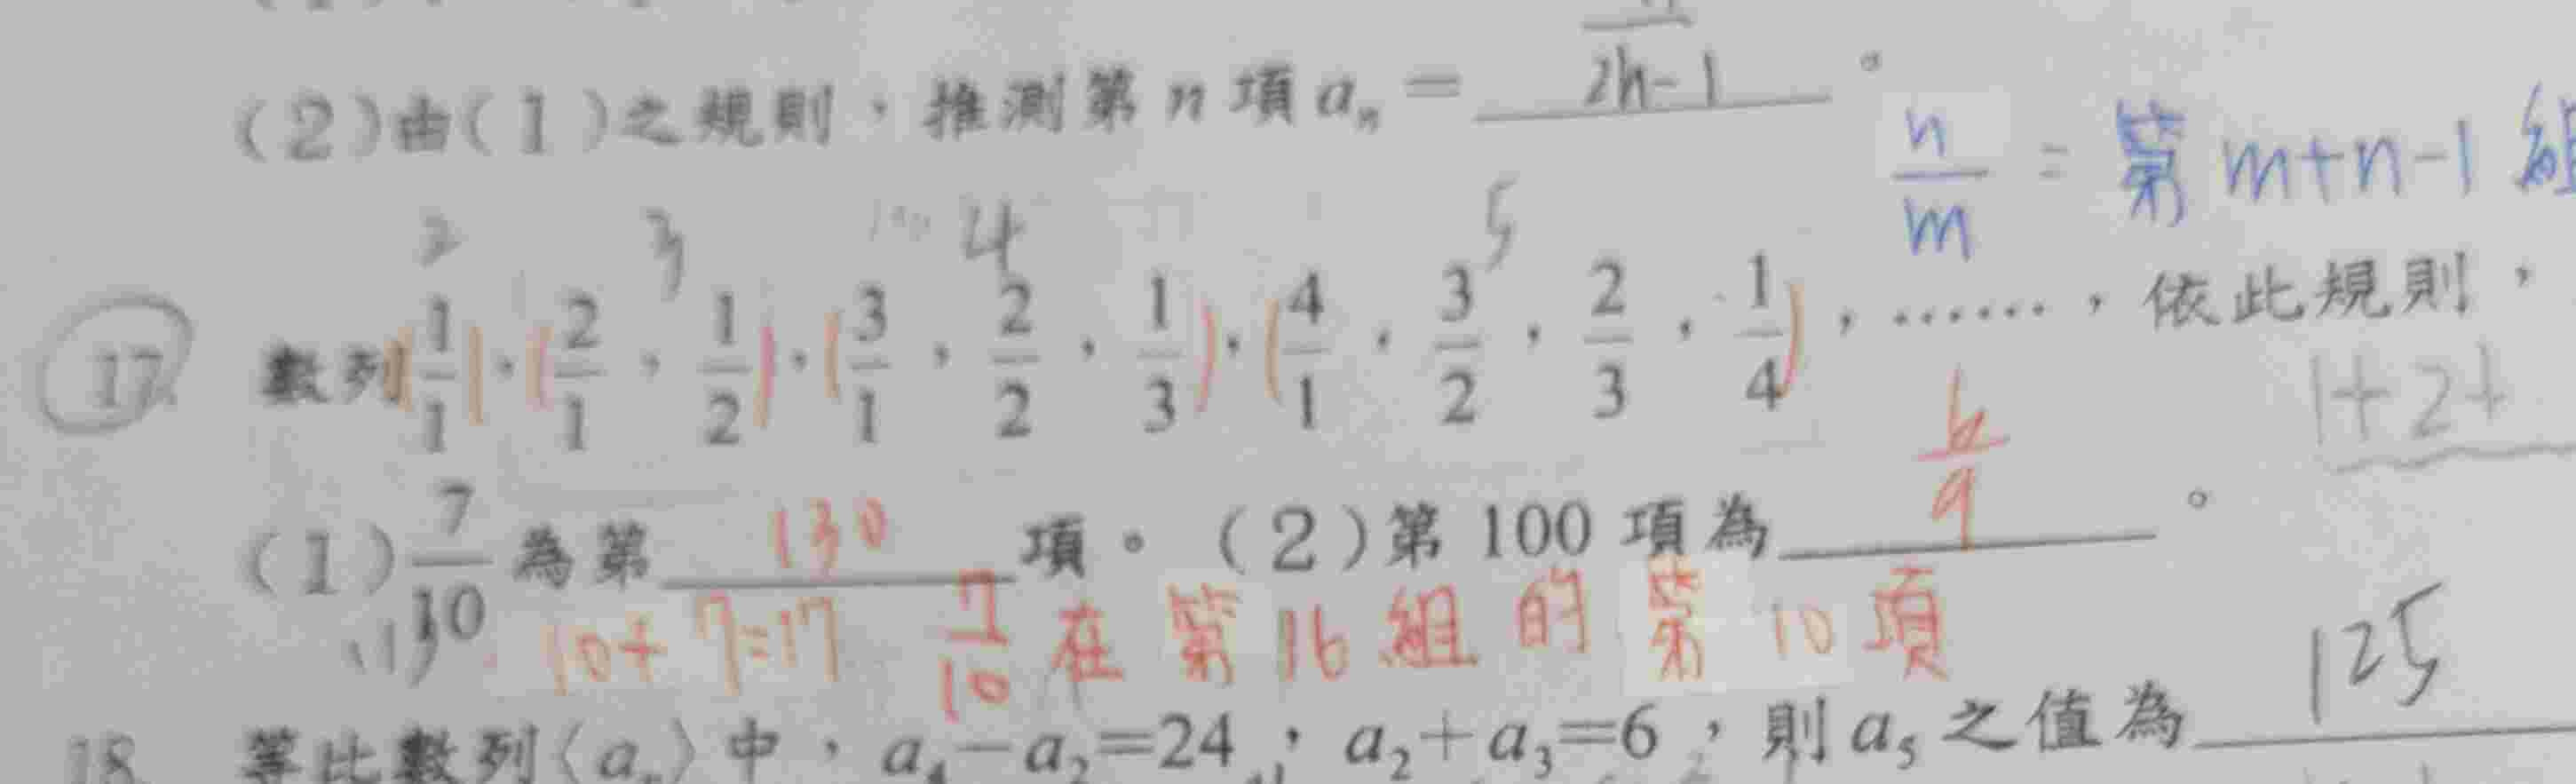 (2)由(1)之規則，推測第 n 項 aₙ = 2n-1 。
n/m = 第 m+n-1 組
2 3 4 5
17. 數列(1/1)，(2/1，1/2)，(3/1，2/2，1/3)，(4/1，3/2，2/3，1/4)，……，依此規則，
1+2+
(1) 7/10 為第 130 項。(2)第 100 項為 6/9 。
(1) 10+7=17 7/10 在 第 16 組 的 第 10 項
125
18. 等比數列⟨aₙ⟩中，a₄－a₂=24，a₂+a₃=6，則 a₅ 之值為